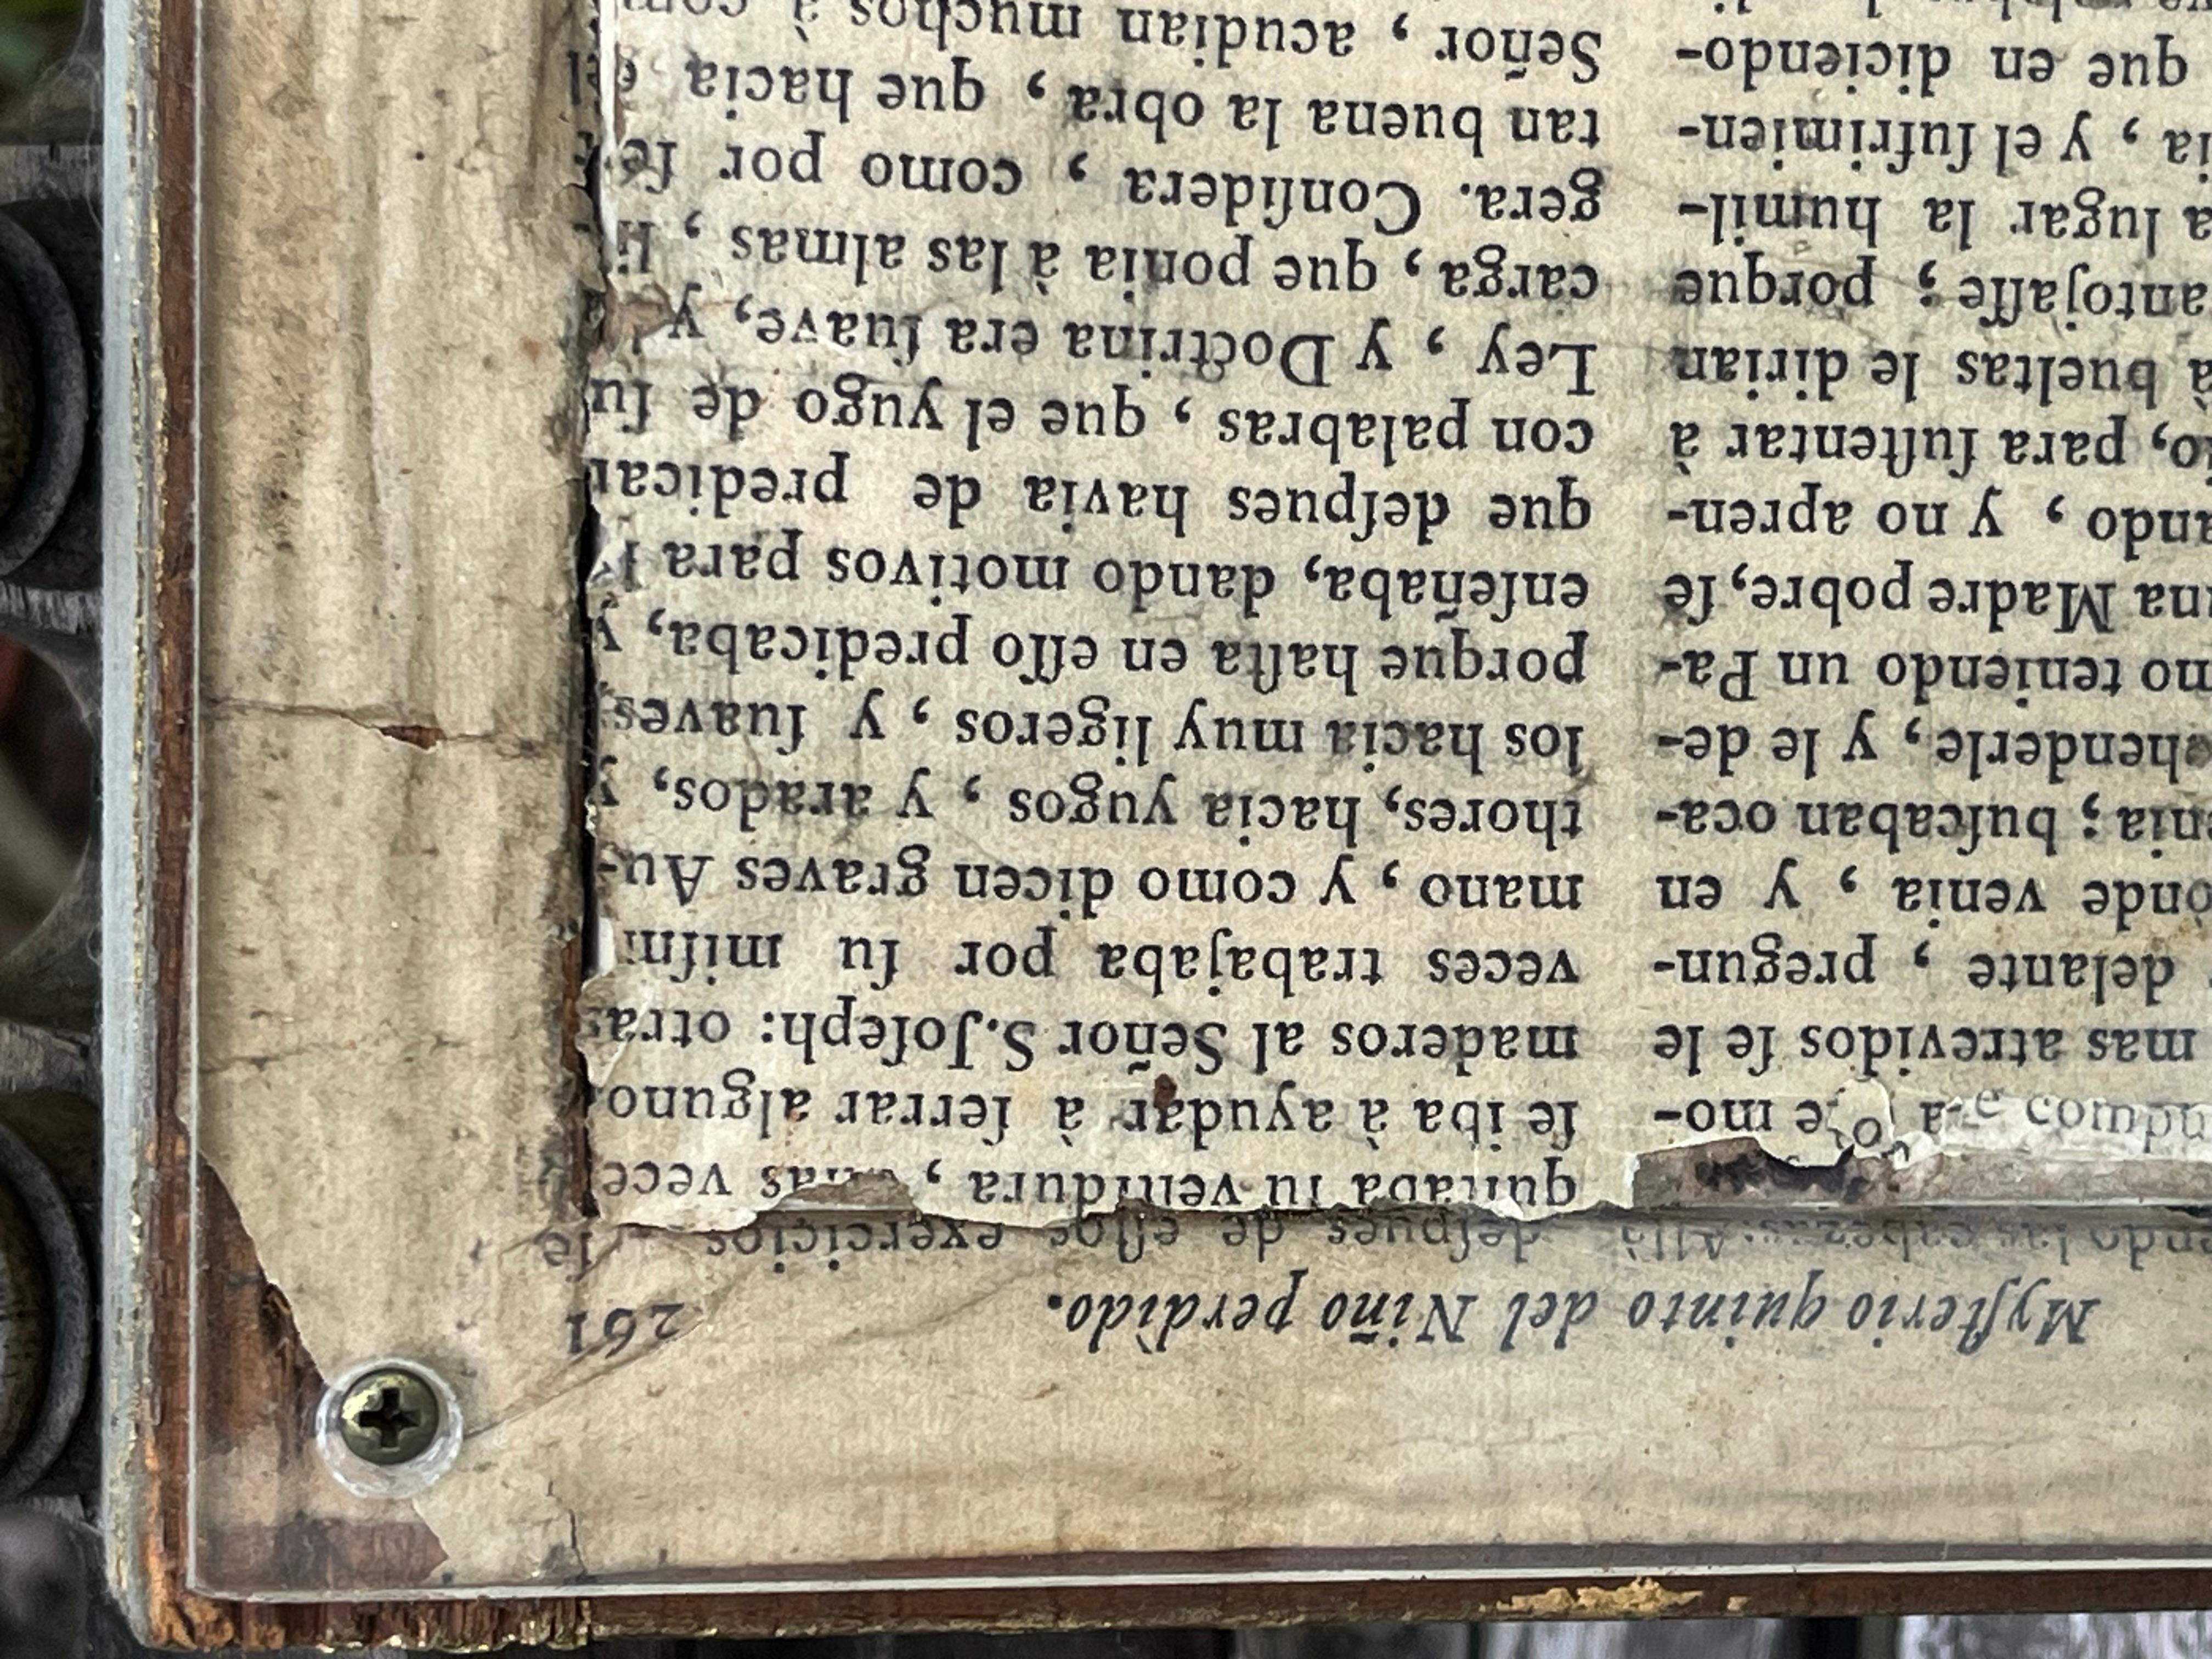 Myſterio quinto del Niño perdido. 261
deſpues de eſtos exercicios ſe
mo-
mas atrevidos ſe le
delante , pregun-
venia , y en
buſcaban oca-
y le de-
no teniendo un Pa-
una Madre pobre, ſe
y no apren-
para ſuſtentar à
à bueltas le dirian
antojaſſe ; porque
lugar la humil-
y el ſufrimien-
que en diciendo-
quitaba ſu veſtidura ,
ſe iba à ayudar à ſerrar alguno
maderos al Señor S. Joſeph: otras
veces trabajaba por ſu miſm
mano , y como dicen graves Au-
thores, hacia yugos , y arados, y
los hacia muy ligeros , y ſuaves,
porque haſta en eſſo predicaba, y
enſeñaba, dando motivos para
que deſpues havia de predicar
con palabras , que el yugo de ſu
Ley , y Doctrina era ſuave, y
carga , que ponia à las almas , li-
gera. Conſidera , como por ſe
tan buena la obra , que hacia el
Señor , acudian muchos à com